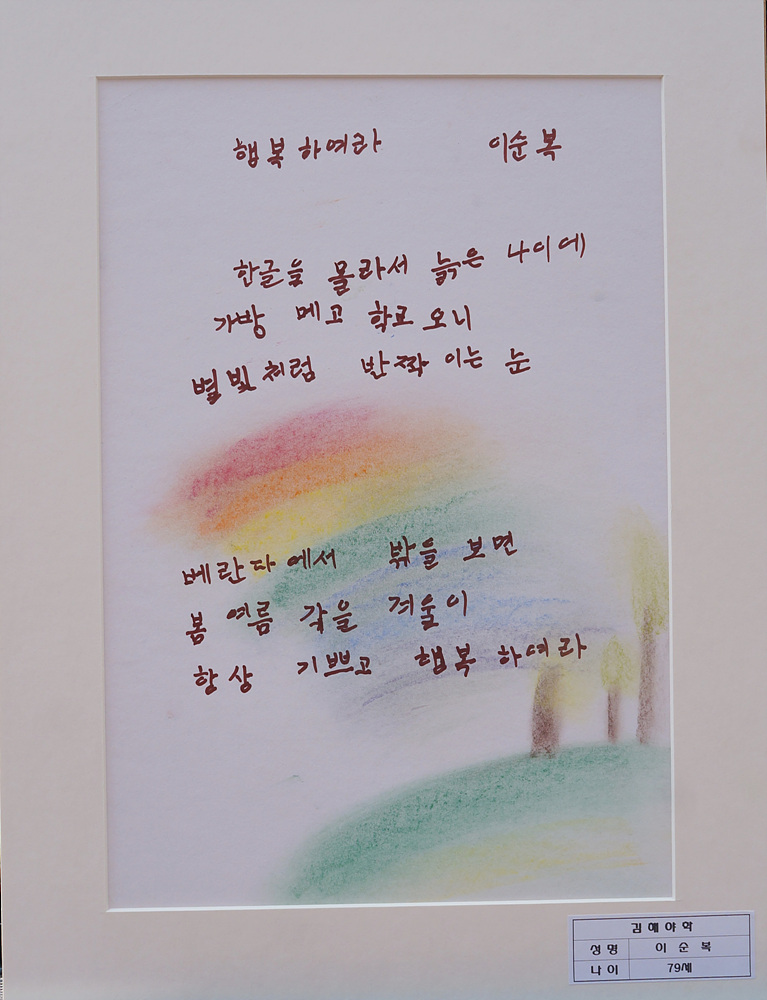 행복 하여라 이순복
한글을 몰라서 늙은 나이에
가방 메고 학교 오니
별빛처럼 반짝 이는 눈
베란다에서 밖을 보면
봄 여름 각을 겨울이
항상 기쁘고 행복 하여라
김해야학
성명 이순복
나이 79세